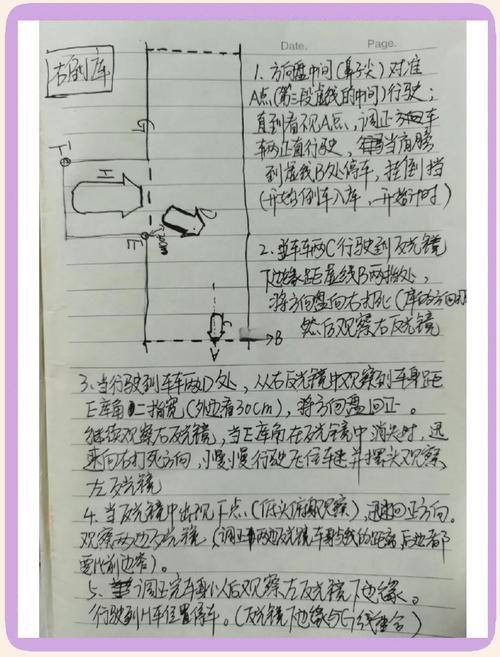 右倒库
Date.
Page.
1. 方向盘中间(鼻子尖)对准
A点(第三段虚线的中间)行驶;
直到看不见A点,调正方向车
车辆正直行驶,当肩膀
到虚线B处停车,挂倒挡
(开始倒车入库,开始计时)
G
I
H
E
30cm
B
A
2. 当车辆C行驶到反光镜
下边缘距虚线B两指处,
将方向盘向右打死(库右方向打
然后观察右反光镜
3. 当行驶到车辆D处,从右反光镜中观察到车身距
E库角二指宽(外边看30cm),将方向盘回正。
继续观察右反光镜,当E库角在反光镜中消失时,迅
速向右打死方向,慢慢行驶左右车速并摆头观察
左反光镜
4. 当反光镜中出现下点(低头俯瞰观察),迅速回正方向。
观察两边反光镜(调正两边反光镜车身与线的距离后边都
要比前边窄)。
5. 调正完车身以后观察左反光镜下边缘。
行驶到H车位置停车。(反光镜下边缘与G线重合)